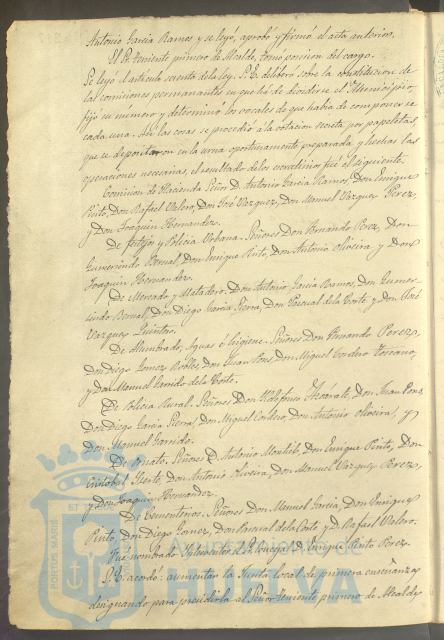 Antonio Garcia Ramos, y se leyó, aprobó y firmó el acta anterior.
El Sr. Teniente primero de Alcalde, tomó posesion del cargo.
Se leyó el artículo sesenta de la ley. S.E. deliberó sobre la constitucion de
las comisiones permanentes en que há de dividirse el Municipio,
fijó su número y determinó los vocales de que habia de componerse
cada una. Asi las cosas se procedió á la votacion secreta por papeletas,
que se depositaron en la urna oportunamente preparada y hechas las
operaciones necesarias, el resultado de los escrutinios fué el siguiente.
Comision de Hacienda Señs. D. Antonio Garcia Ramos, Don Enrique
Pinto, Don Rafael Valero, Don José Vazquez, Don Manuel Vazquez Perez,
y Don Joaquin Hernandez.
De festejos y Policia Urbana. Señores Don Fernando Perez, Don
Gumersindo Bernal, Don Enrique Pinto, Don Antonio Oliveira y Don
Joaquin Hernandez.
De Mercado y Matadero. Don Antonio Garcia Ramos, Don Gumer-
sindo Bernal, Don Diego Garcia Sierra, Don Pascual de la Corte y Don José
Vazquez Quintos.
De Alumbrado, Aguas é higiene. Señores Don Fernando Perez,
Don Diego Gomez Robles, Don Juan Pons, Don Miguel Cordero Toscano,
y Don Manuel Garrido de la Corte.
De Policia Rural. Señores Don Ildefonso Don Juan Pons
Don Diego Garcia Sierra, Don Miguel Cordero, Don Antonio Oliveira, y
Don Manuel Garrido.
De Ornato. Señores D. Antonio Montiel, Don Enrique Pinto, Don
Cristóbal Don Antonio Oliveira, Don Manuel Vazquez Perez,
y Don Joaquin Hernandez
De Cementerios. Señores Don Manuel Garcia, Don Enrique
Pinto, Don Diego Gomez, Don Pascual de la Corte, y D. Rafael Valero.
Fué nombrado Interventor el Sr. Concejal D. Enrique Pinto Perez.
S.E. acordó: aumentar la Junta local de primera enseñanza,
designando para presidirla al Señor Teniente primero de Alcalde
PORTUS MARIS ET
Ayuntamiento de
HUELVA